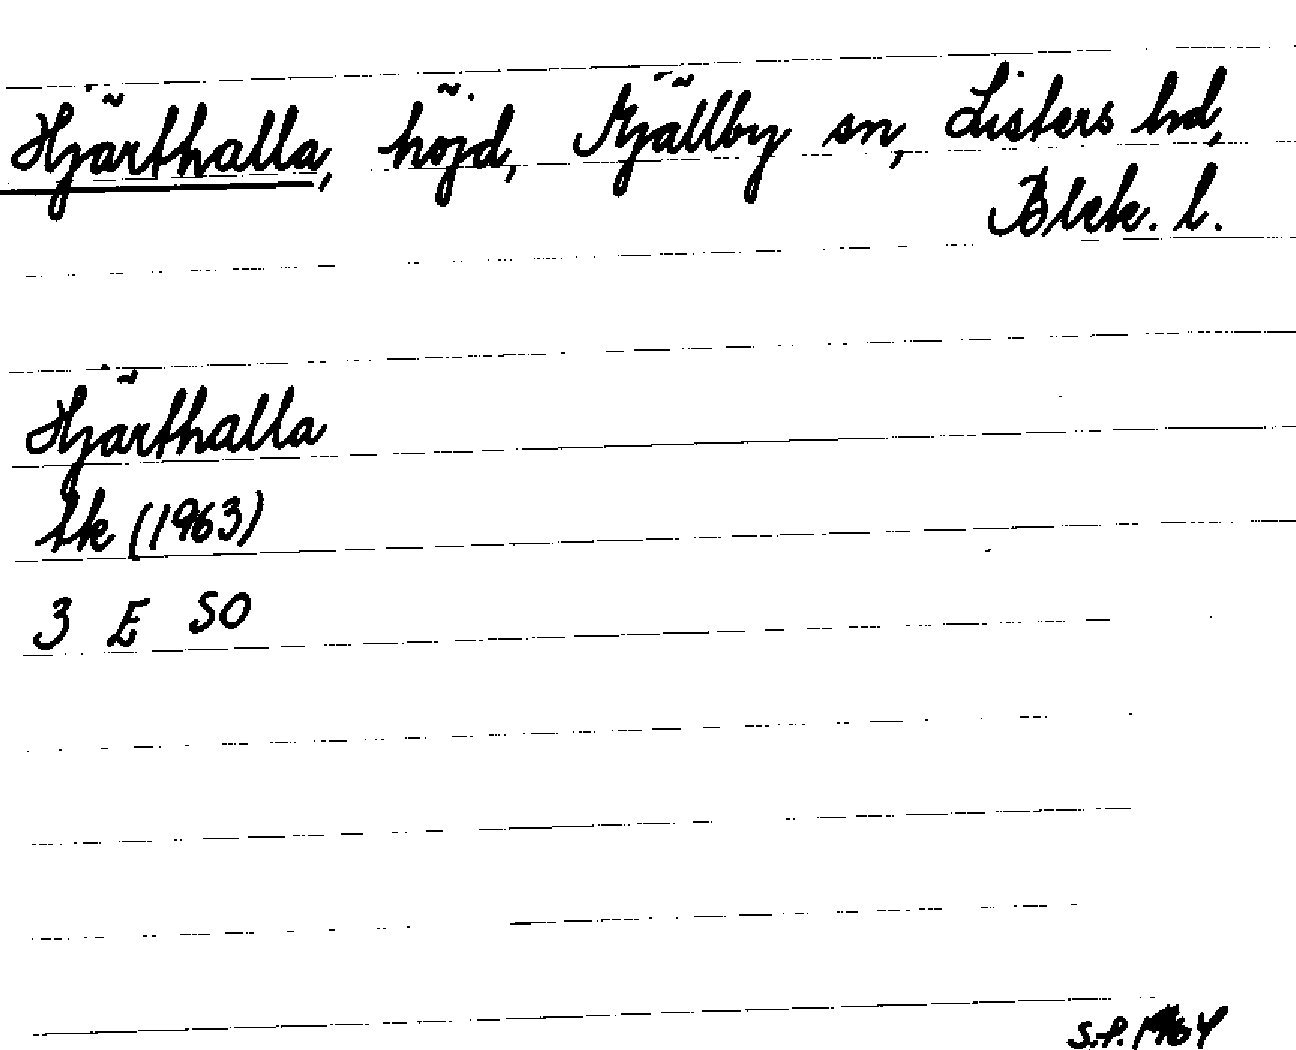 Hjärthalla, höjd, Mjällby sn, Listers hd,
Blek. l.
Hjärthalla
tk (1963)
3 E SO
S.P. 1964